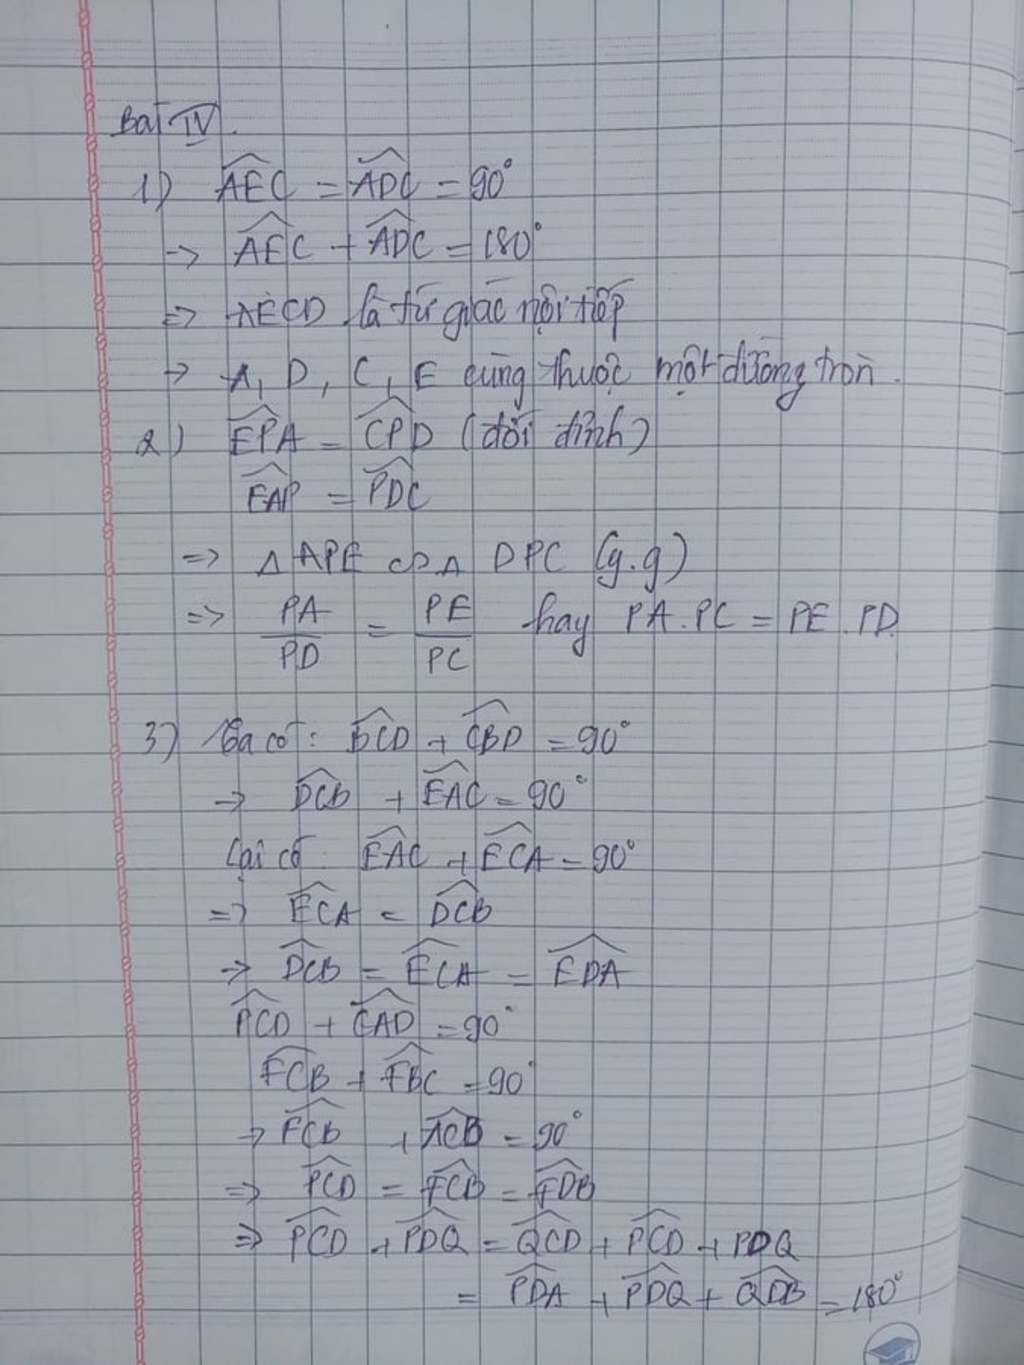 Bài IV.
1) AEC = ADC = 90°
→ AEC + ADC = 180°
⇒ AECD là tứ giác nội tiếp
→ A, D, C, E cùng thuộc một đường tròn.
2) EPA = CPD (đối đỉnh)
EAP = PDC
⇒ Δ APE ∽ Δ DPC (g.g)
⇒ PA/PD = PE/PC hay PA.PC = PE.PD
3) Ta có: BCD + CBD = 90°
→ DCB + EAC = 90°
Lại có: EAC + ECA = 90°
⇒ ECA = DCB
⇒ DCB = ECA = EDA
PCD + CAD = 90°
FCB + FBC = 90°
→ FCB + ACB = 90°
⇒ PCD = FCB = FDB
⇒ PCD + PDQ = QCD + PCD + PDQ
= PDA + PDQ + QDB = 180°